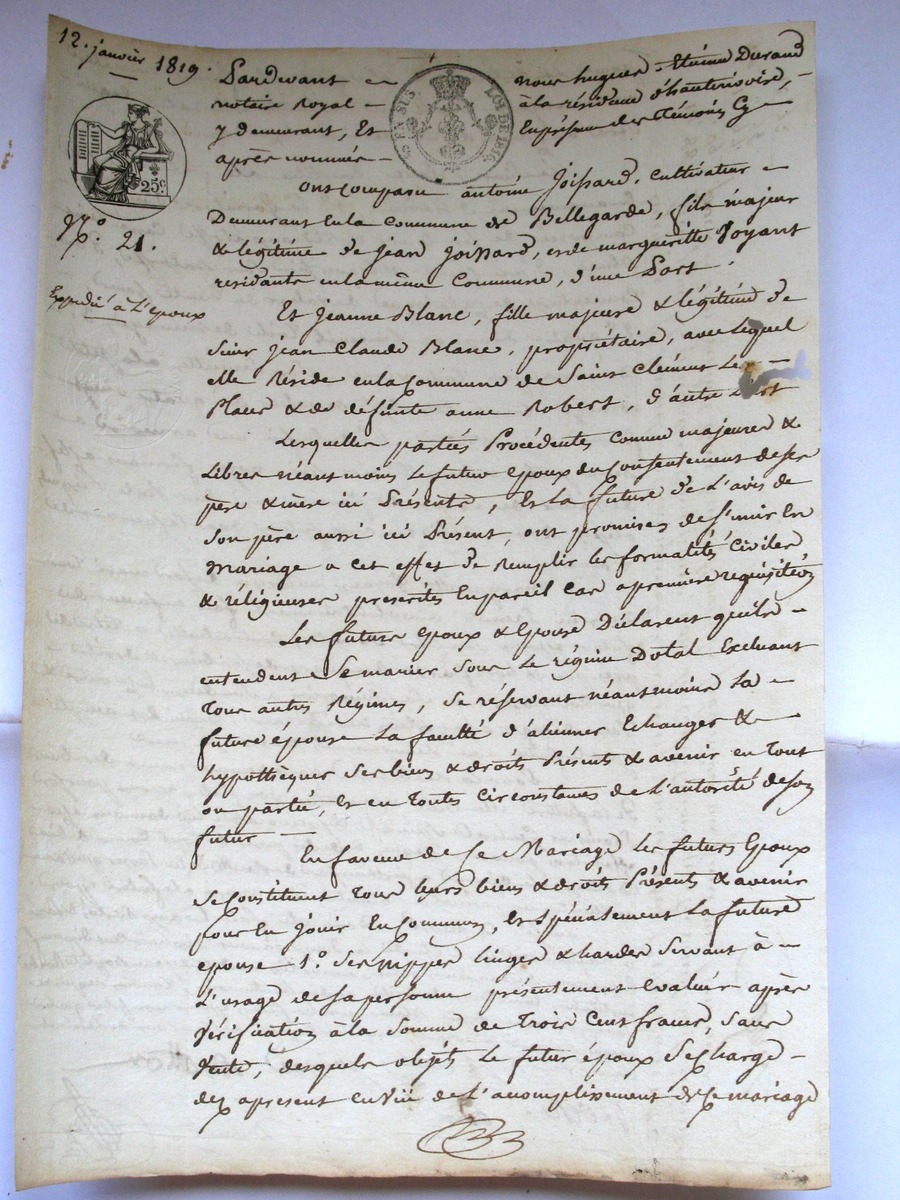 12. janvier 1819.
Pardevant nous hugues-Etienne Durand
notaire Royal à la résidence d'hauterivoire,
y demeurant, Et En présence des témoins Cy
après nommés
EN SUS LOI DE 1816
25c.
N.° 21.
Expedié à L'epoux
ont comparu antoine Joissard, cultivateur
Demeurant en la commune de Bellegarde, fils majeur
& légitime de jean joissard, et de margueritte Poyant
residants en la même Commune, d'une Part.
Et jeanne Blanc, fille majeure & légitime de
Sieur jean Claude Blanc, propriétaire, avec lequel
elle Réside en la commune de Saint Clément Les
Places & de défunte anne Robert, d'autre Part
Lesquelles parties Procédentes comme majeures &
Libres néantmoins Le futur epoux du Consentement de ses
père & mère ici Présents, Et La future de L'avis de
Son père aussi ici Présent, ont promises de S'unir En
Mariage a cet effet de Remplir les formalités Civiles
& réligieuses prescrites En pareil Cas a première requisition
Les futurs epoux & Epouse Déclarent qu'ils
entendent Se marier Sous Le régime Dotal Excluant
Tous autres Régimes, Se réservant néantmoins La
future épouse La faculté d'aliener Echanger &
hypothèquer Ses biens & droits Présents & avenir en Tout
ou partie, Et en Toutes Circonstances de L'autorité de Son
futur
En faveur de Ce Mariage Les futurs Epoux
Se Constituent Tous leurs biens & droits Présents & avenir
pour En jouir En Commun, Et Spécialement La future
epouse 1.° Ses nippes linges & hardes Servant à
L'usage de Sa personne présentement evalués après
Vérification à la Somme de Trois Cent francs, Sans
Vente, desquels objets Le futur époux Se charge
des apresent en Vüe de L'accomplissement de Ce mariage